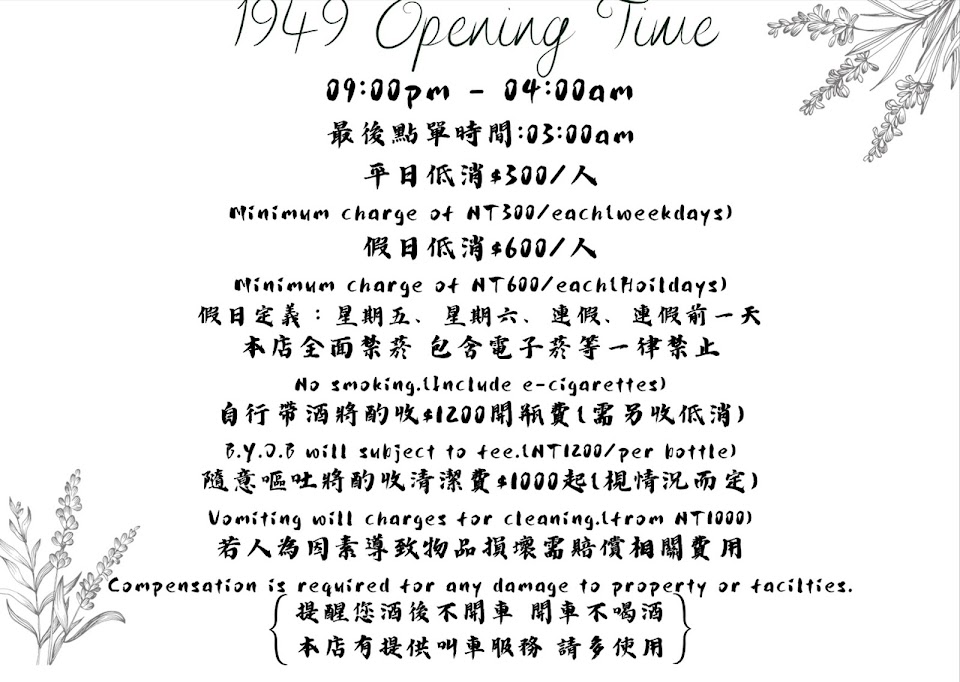 1949 Opening Time
09:00pm - 04:00am
最後點單時間:03:00am
平日低消$300/人
Minimum charge of NT300/each(weekdays)
假日低消$600/人
Minimum charge of NT600/each(Hoildays)
假日定義：星期五、星期六、連假、連假前一天
本店全面禁菸 包含電子菸等一律禁止
No smoking.(Include e-cigarettes)
自行帶酒將酌收$1200開瓶費(需另收低消)
B.Y.O.B will subject to fee.(NT1200/per bottle)
隨意嘔吐將酌收清潔費$1000起(視情況而定)
Vomiting will charges for cleaning.(from NT1000)
若人為因素導致物品損壞需賠償相關費用
Compensation is required for any damage to property or facilties.
提醒您酒後不開車 開車不喝酒
本店有提供叫車服務 請多使用